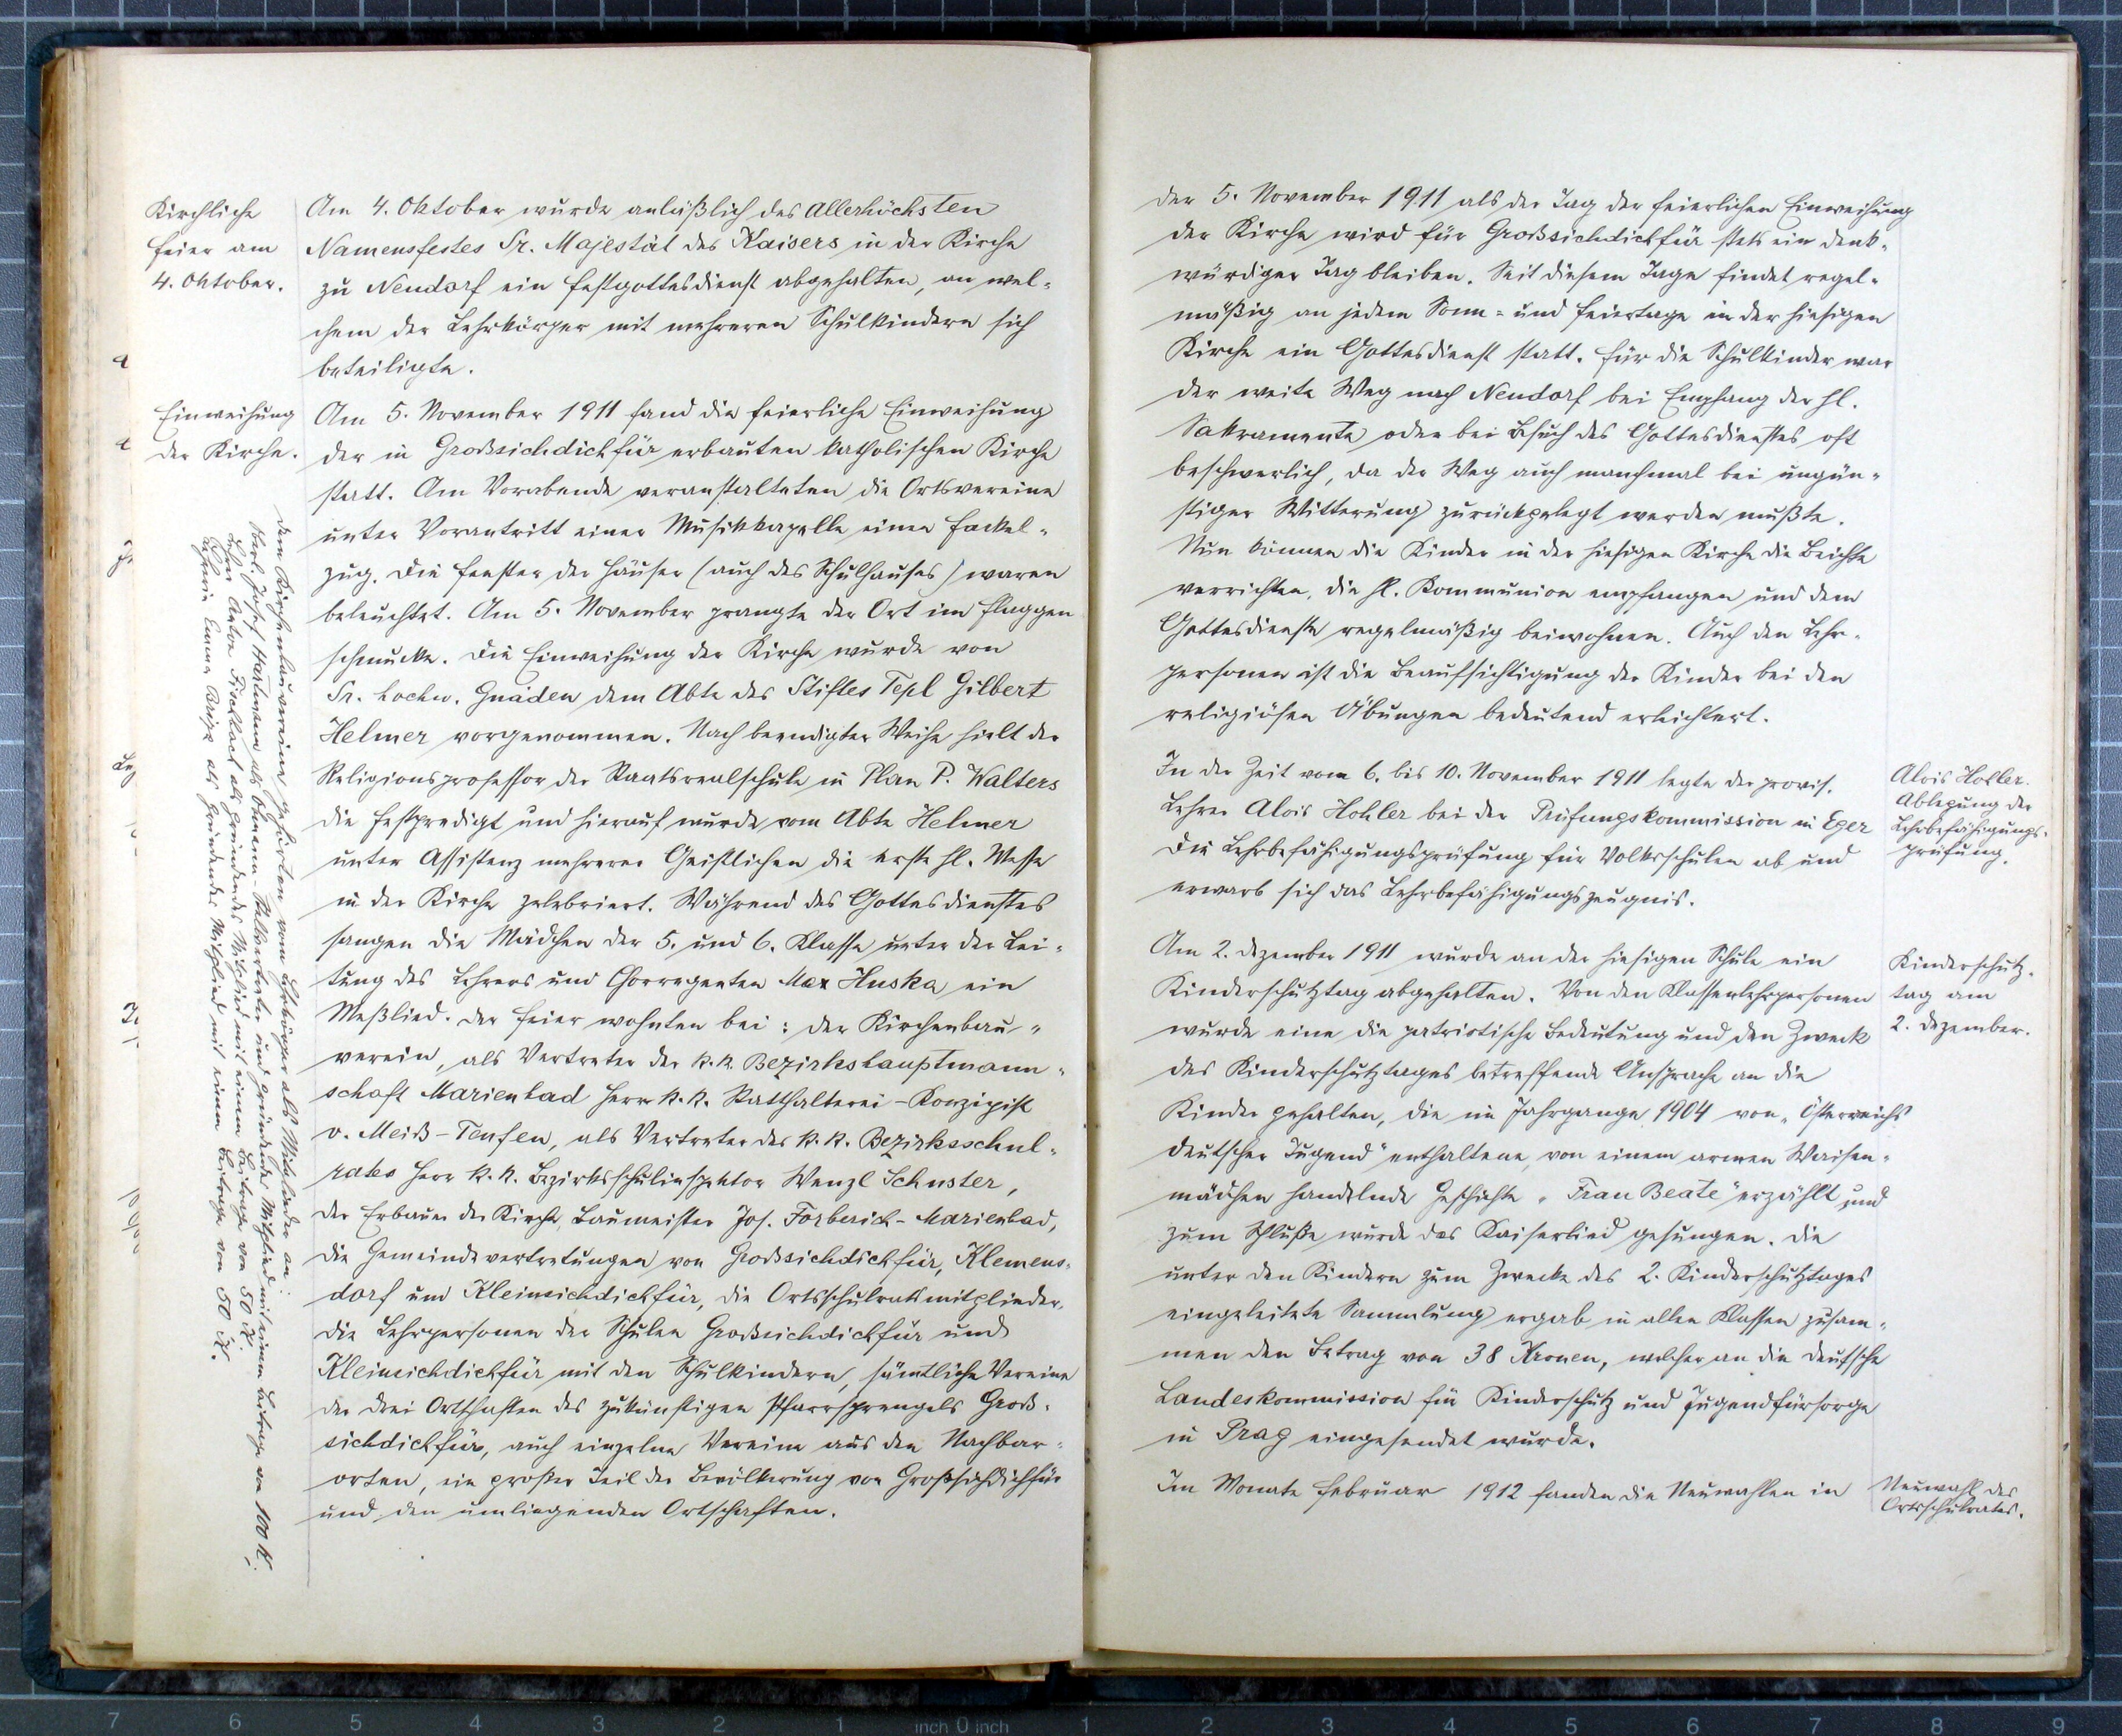 Kirchliche
Feier am
4. Oktober.
Am 4. Oktober wurde anläßlich des Allerhöchsten
Namensfestes Sr. Majestät des Kaisers in der Kirche
zu Neudorf ein Festgottesdienst abgehalten, an wel-
chem der Lehrkörper mit mehreren Schulkindern sich
beteiligte.
Einweihung
der Kirche.
Am 5. November 1911 fand die feierliche Einweihung
der in Großsichdichfür erbauten katholischen Kirche
statt. Am Vorabende veranstalteten die Ortsvereine
unter Vorantritt einer Musikkapelle einen Fackel-
zug. Die Fenster der Häuser (auch des Schulhauses) waren
beleuchtet. Am 5. November prangte der Ort im Flaggen
schmucke. Die Einweihung der Kirche wurde von
Sr. hochw. Gnaden dem Abte des Stiftes Tepl Gilbert
Helmer vorgenommen. Nach beendigter Weihe hielt der
Religionsprofessor der Staatsrealschule in Plan P. Walters
die Festpredigt und hierauf wurde vom Abte Helmer
unter Assistenz mehrerer Geistlichen die erste hl. Messe
in der Kirche zelebriert. Während des Gottesdienstes
sangen die Mädchen der 5. und 6. Klasse unter der Lei-
tung des Lehrers und Chorregenten Max Huska ein
Meßlied. Der Feier wohnten bei: der Kirchenbau-
verein, als Vertreter der k.k. Bezirkshauptmann-
schaft Marienbad Herr k.k. Statthalterei-Konzipist
v. Meiß-Teufen, als Vertreter des k.k. Bezirksschul-
rates Herr k.k. Bezirksschulinspektor Wenzl Schuster,
der Erbauer der Kirche, Baumeister Jos. Forberich-Marienbad,
die Gemeindevertretungen von Großsichdichfür, Klemens-
dorf und Kleinsichdichfür, die Ortsschulratsmitglieder,
die Lehrpersonen der Schulen Großsichdichfür und
Kleinsichdichfür mit den Schulkindern, sämtliche Vereine
der drei Ortschaften des zukünftigen Pfarrsprengels Groß-
sichdichfür, auch einzelne Vereine aus den Nachbar-
orten, ein großer Teil der Bevölkerung von Großsichdichfür
und den umliegenden Ortschaften.
Dem Kirchenbauvereine gehörten vom Lehrkörper als Mitglieder an:
Josef Hartmann als Obmann-Stellvertreter und gründendes Mitglied mit einem Beitrage von 100 K,
Lehrer Anton als gründendes Mitglied mit einem Beitrage von 50 K,
Emma als gründendes Mitglied mit einem Beitrage von 50 K.
Der 5. November 1911 als der Tag der feierlichen Einweihung
der Kirche wird für Großsichdichfür stets ein denk-
würdiger Tag bleiben. Seit diesem Tage findet regel-
mäßig an jedem Sonn- und Feiertage in der hiesigen
Kirche ein Gottesdienst statt. Für die Schulkinder war
der weite Weg nach Neudorf bei Empfang der hl.
Sakramente oder bei Besuch des Gottesdienstes oft
beschwerlich, da der Weg auch manchmal bei ungün-
stiger Witterung zurückgelegt werden mußte.
Nun können die Kinder in der hiesigen Kirche die Beichte
verrichten, die hl. Kommunion empfangen und dem
Gottesdienste regelmäßig beiwohnen. Auch den Lehr-
personen ist die Beaufsichtigung der Kinder bei den
religiösen Übungen bedeutend erleichtert.
In der Zeit vom 6. bis 10. November 1911 legte der provis.
Lehrer Alois Hohler bei der Prüfungskommission in Eger
die Lehrbefähigungsprüfung für Volksschulen ab und
erwarb sich das Lehrbefähigungszeugnis.
Alois Hohler.
Ablegung der
Lehrbefähigungs-
prüfung.
Am 2. Dezember 1911 wurde an der hiesigen Schule ein
Kinderschutztag abgehalten. Von den Klassenlehrpersonen
wurde eine die patriotische Bedeutung und den Zweck
des Kinderschutztages betreffende Ansprache an die
Kinder gehalten, die im Jahrgange 1904 von „Österreichs
deutscher Jugend" enthaltene, von einem armen Waisen-
mädchen handelnde Geschichte „Frau Beate" erzählt und
zum Schluße wurde das Kaiserlied gesungen. Die
unter den Kindern zum Zwecke des 2. Kinderschutztages
eingeleitete Sammlung ergab in allen Klassen zusam-
men den Betrag von 38 Kronen, welcher an die deutsche
Landeskommission für Kinderschutz und Jugendfürsorge
in Prag eingesendet wurde.
Kinderschutz-
tag am
2. Dezember.
Im Monate Februar 1912 fanden die Neuwahlen in
Neuwahl des
Ortsschulrates.
7 6 5 4 3 2 1 inch 0 inch 1 2 3 4 5 6 7 8 9